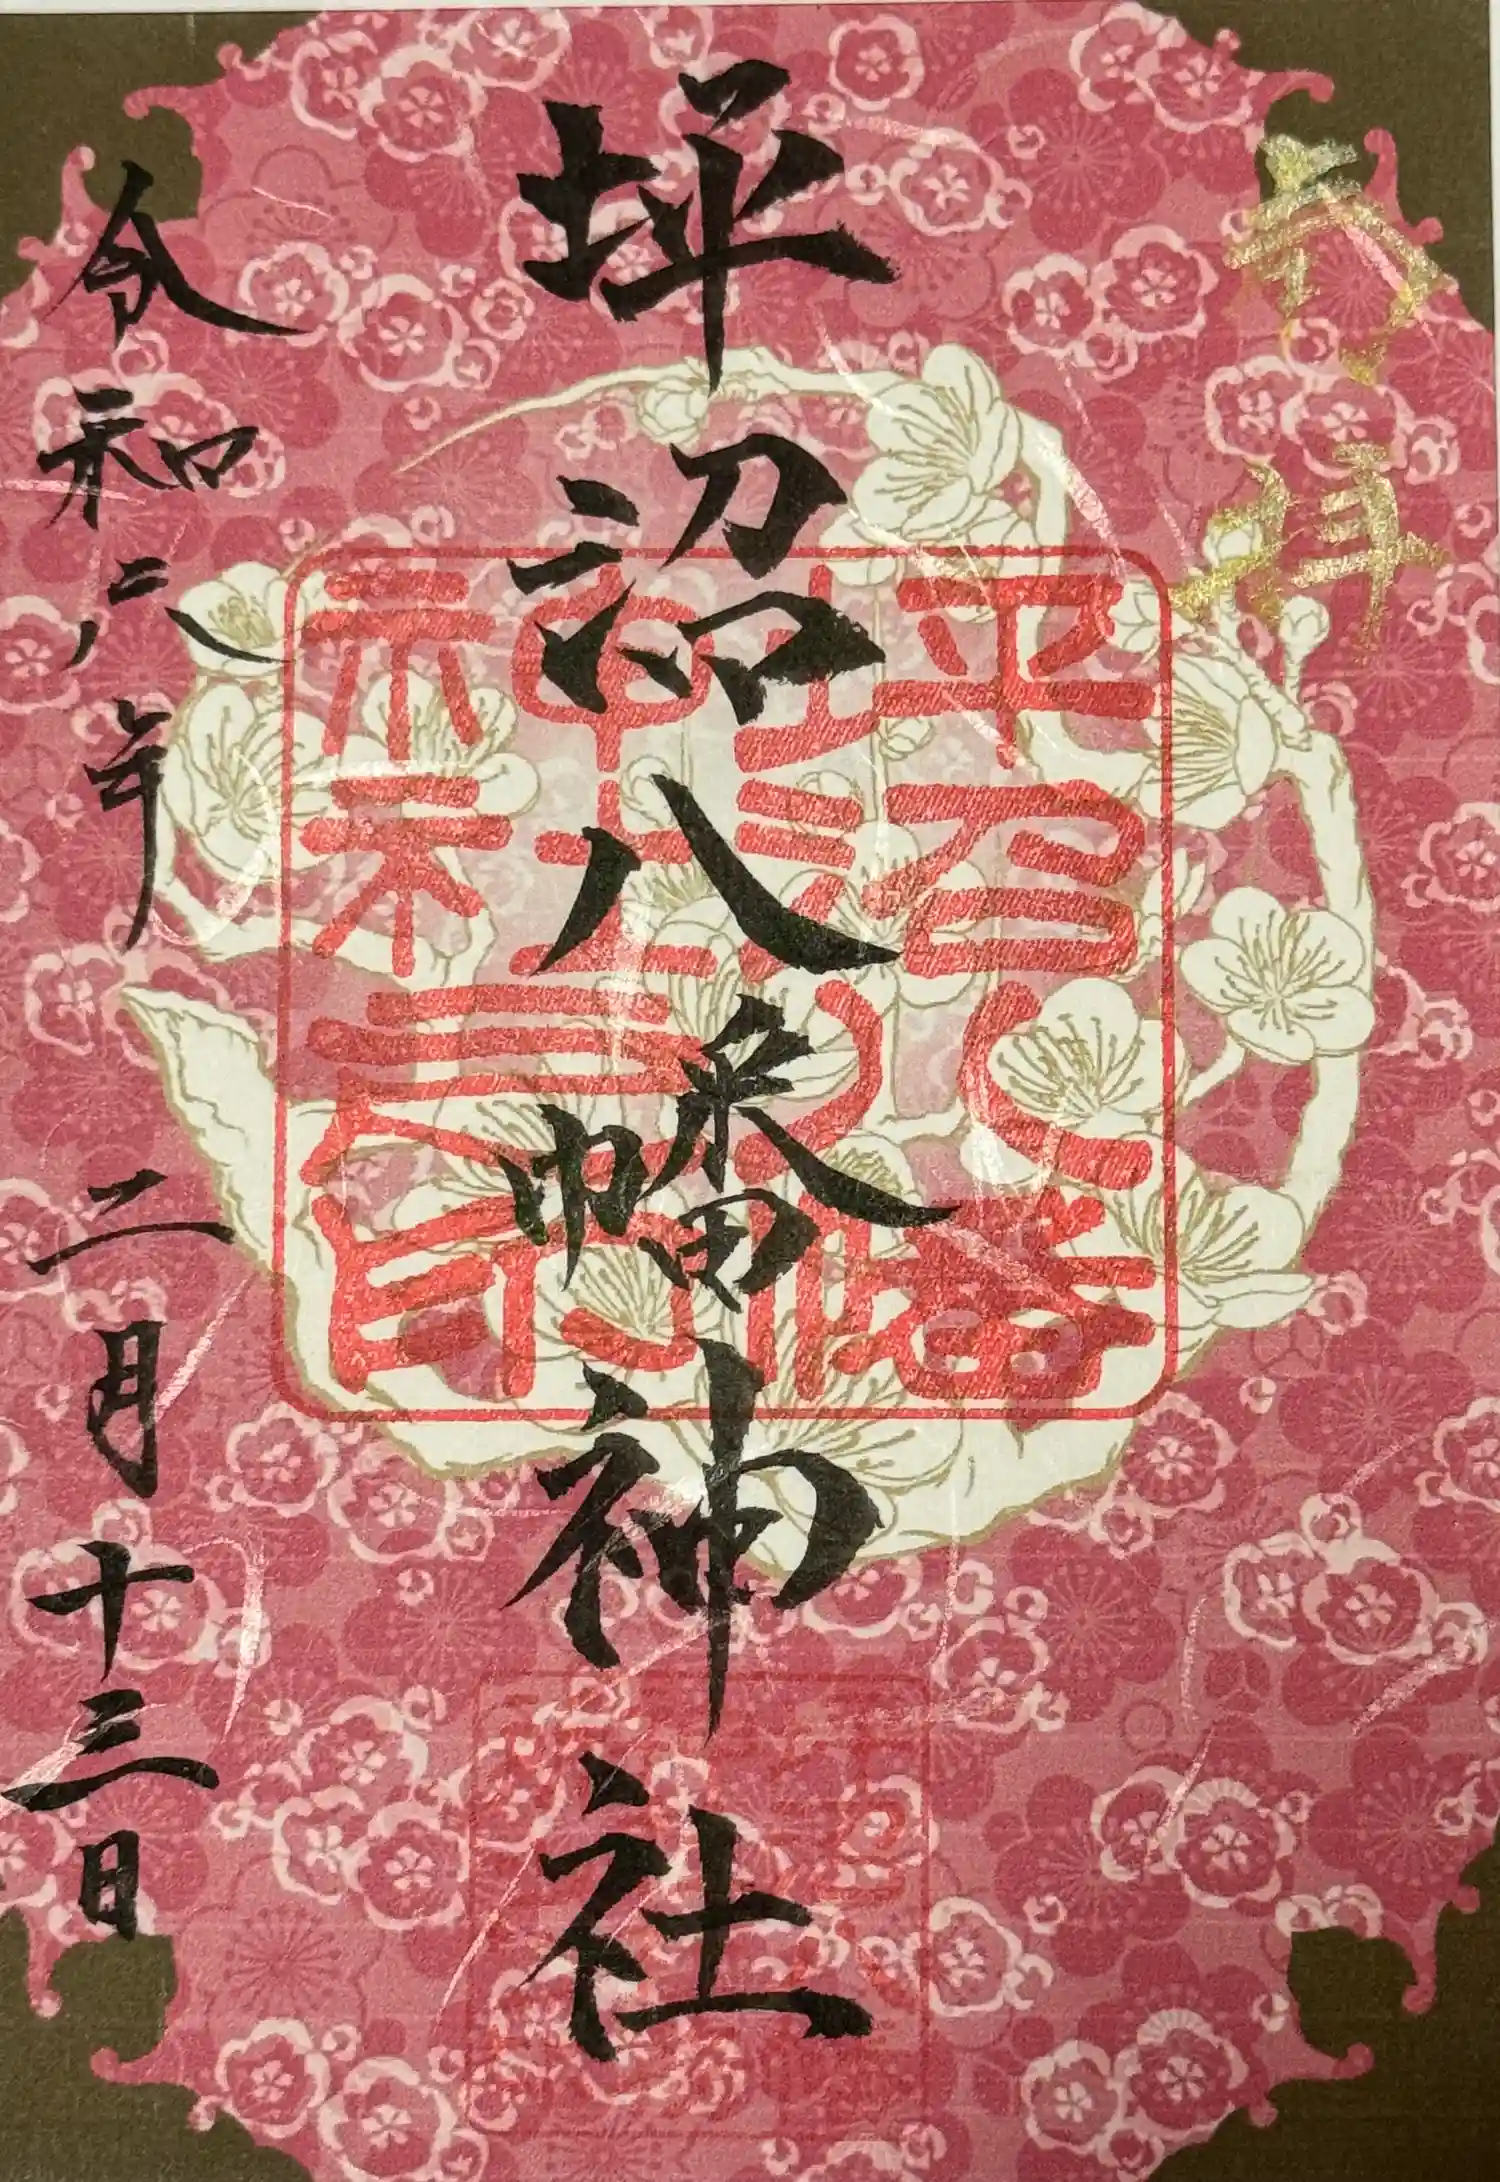 奉拝
坪沼八幡神社
令和六年二月十三日
坪沼八幡
神社